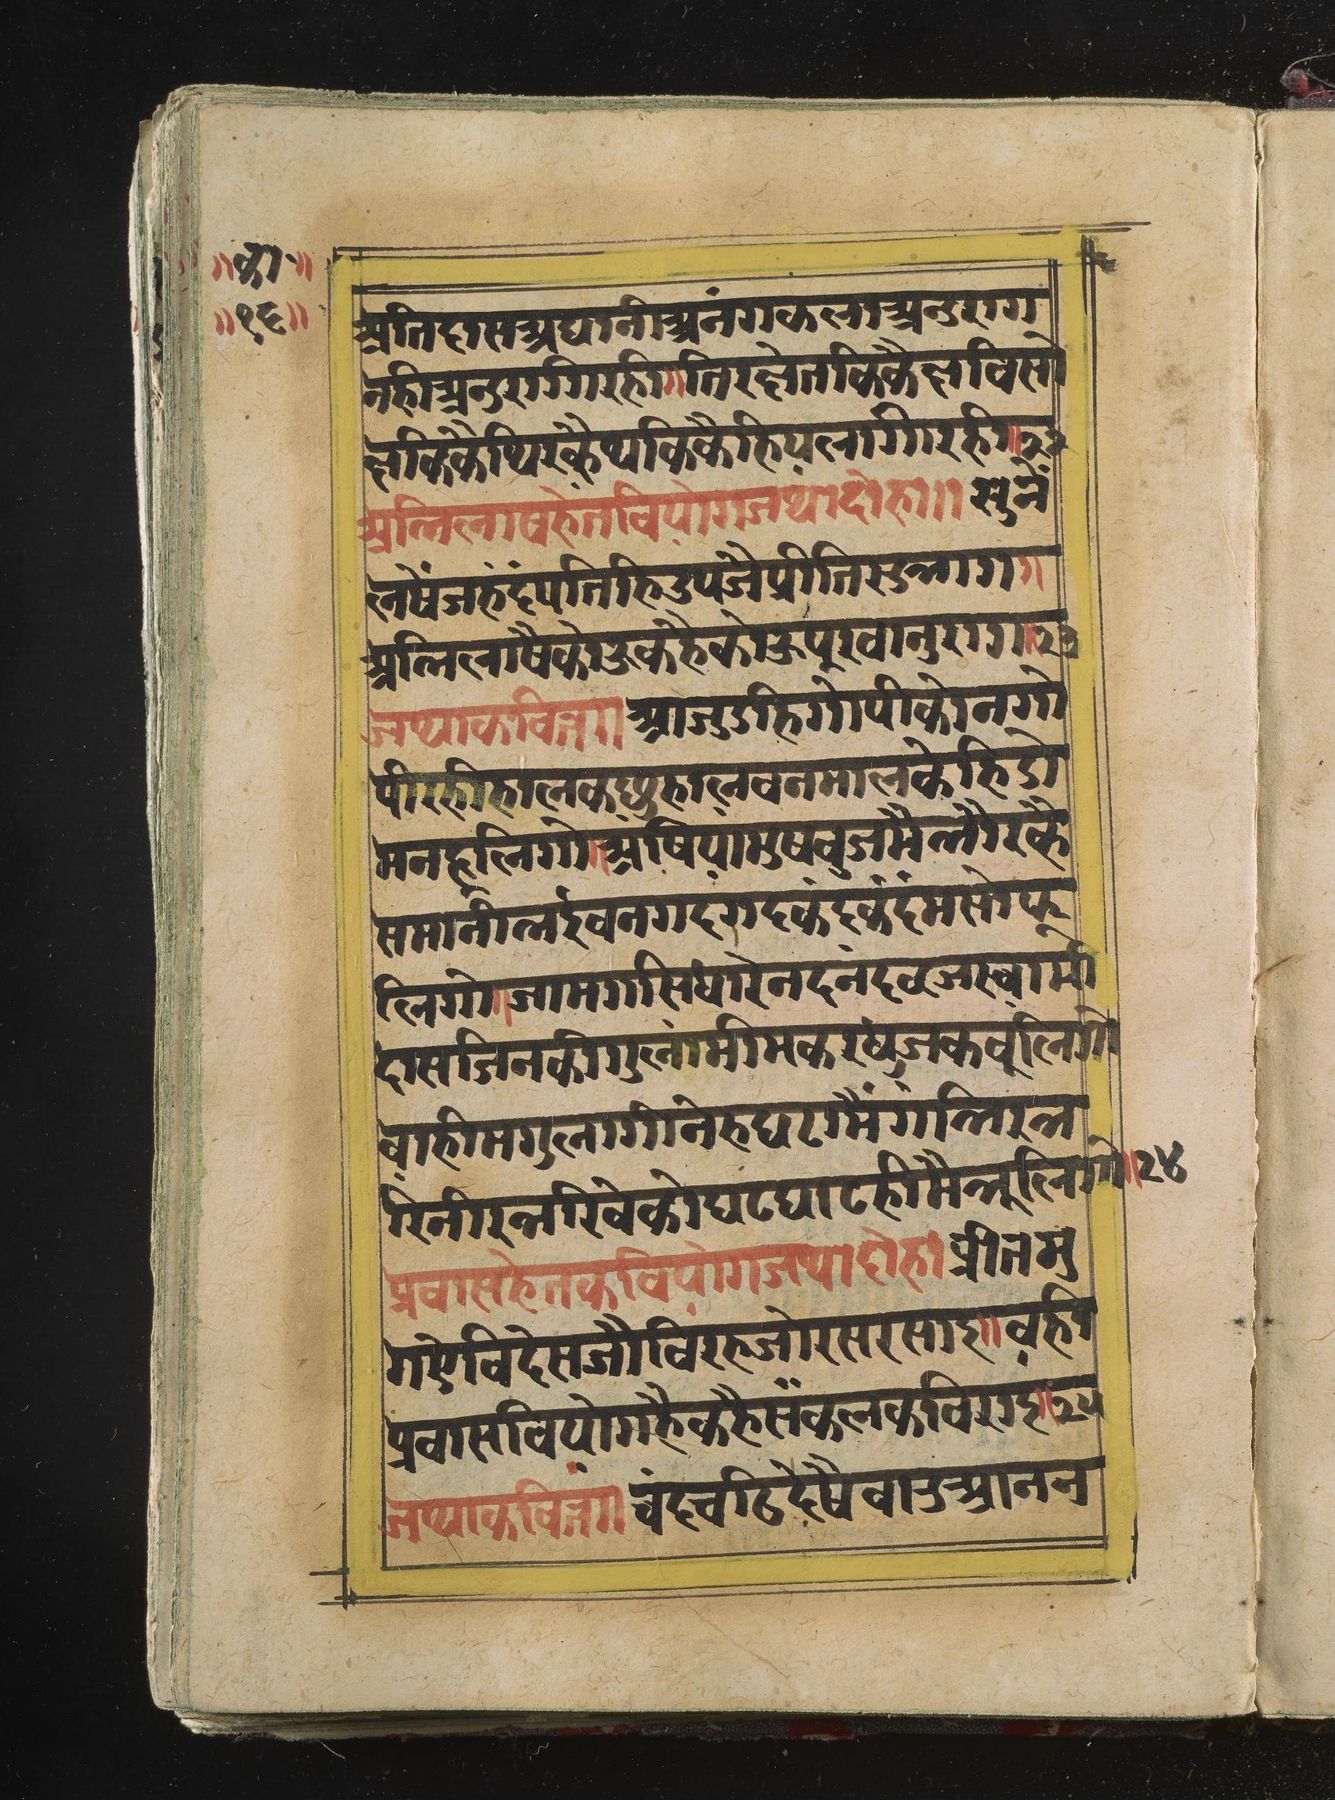 ॥का॥
॥१६॥
अतिदासअघानीअनंगकलाअनुराग
नहीअनुरागिरही॥तिरछेतकिकैछविसो
छकिकैथिरह्वैथकिकैहियलागिरही॥२२
अभिलाषहेतवियोगजथादोहा॥सुनें
लषेंजहंदंपतिहिउपजैप्रीतिसुभाग॥
अभिलाषैकोउकहैकोऊपूरवानुराग॥२३
जथाकवित्त॥आजुउहिगोपीकोनगो
पीरहीहालकछुहालवनमालकेहिंडो
मनझूलिगो॥अंषियांमुषवुजमैंभौंरह्वै
समानीभईवनगदगदकंठकदंमसोफू
लिगो॥जामगसिधारेनदनंदवृजस्वामी
दासजिनकीगुलांमीमकरधुजकवूलिगो
वाहीमगुलागीनेहघटमैंगंभिरभ
रिनीरभरिवेकोघटघाटहीमैभूलिगो॥२४
प्रवासहेतकवियोगजथादोहा॥प्रीतमु
गऐविदेसजौविरहजोरसरसाइ॥वही
प्रवासवियोगहैकहैसंकलकविराइ॥२५
जथाकवित्त॥चंदचढिदेषैचाउआनन